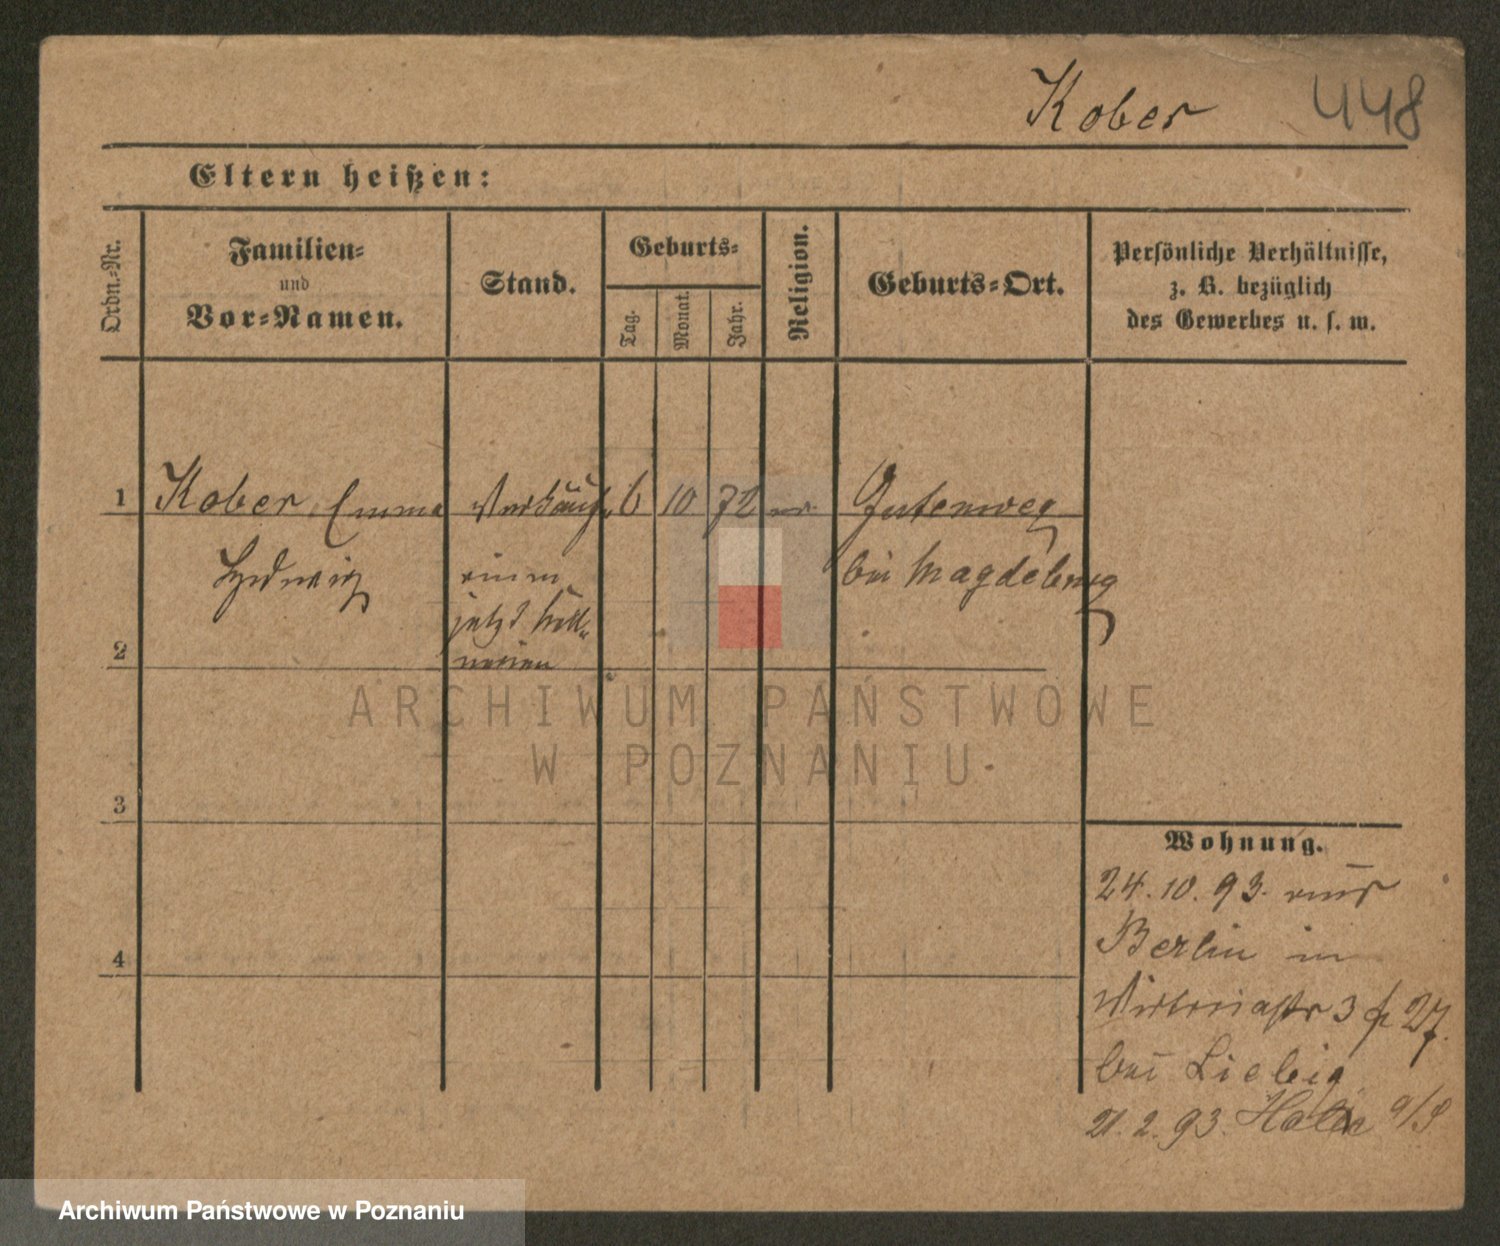 Kober 448
Eltern heißen:
Ordn.-Nr.
Familien-
und
Vor-Namen.
Stand.
Geburts-
Tag.
Monat.
Jahr.
Religion.
Geburts-Ort.
Persönliche Verhältnisse,
z. B. bezüglich
des Gewerbes u. s. w.
1 Kober, Emma Verkäuf 6 10 72 ev. Gutenweg
Hedwig bei Magdeburg
jetzt
2
3
4
Wohnung.
24. 10. 93. aus
Berlin in
Viktoriastr 3 27.
bei Liebig
21. 2. 93. Halle a/S
ARCHIWUM PAŃSTWOWE
W POZNANIU
Archiwum Państwowe w Poznaniu